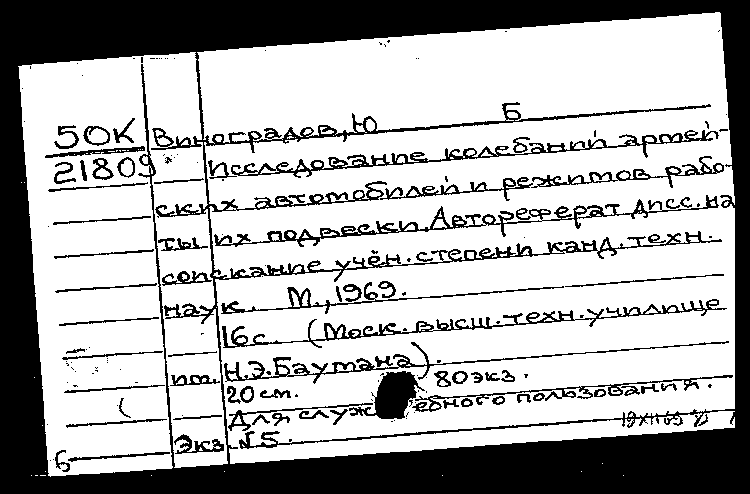 50К Виноградов, Ю Б
21809 Исследование колебаний армей-
ских автомобилей и режимов рабо-
ты их подвески. Автореферат дисс. на
соискание учён. степени канд. техн.
наук. М., 1969.
16 с. (Моск. высш. техн. училище
им. Н.Э.Баумана).
20 см. 80 экз.
Для служебного пользования.
Экз №5.
б